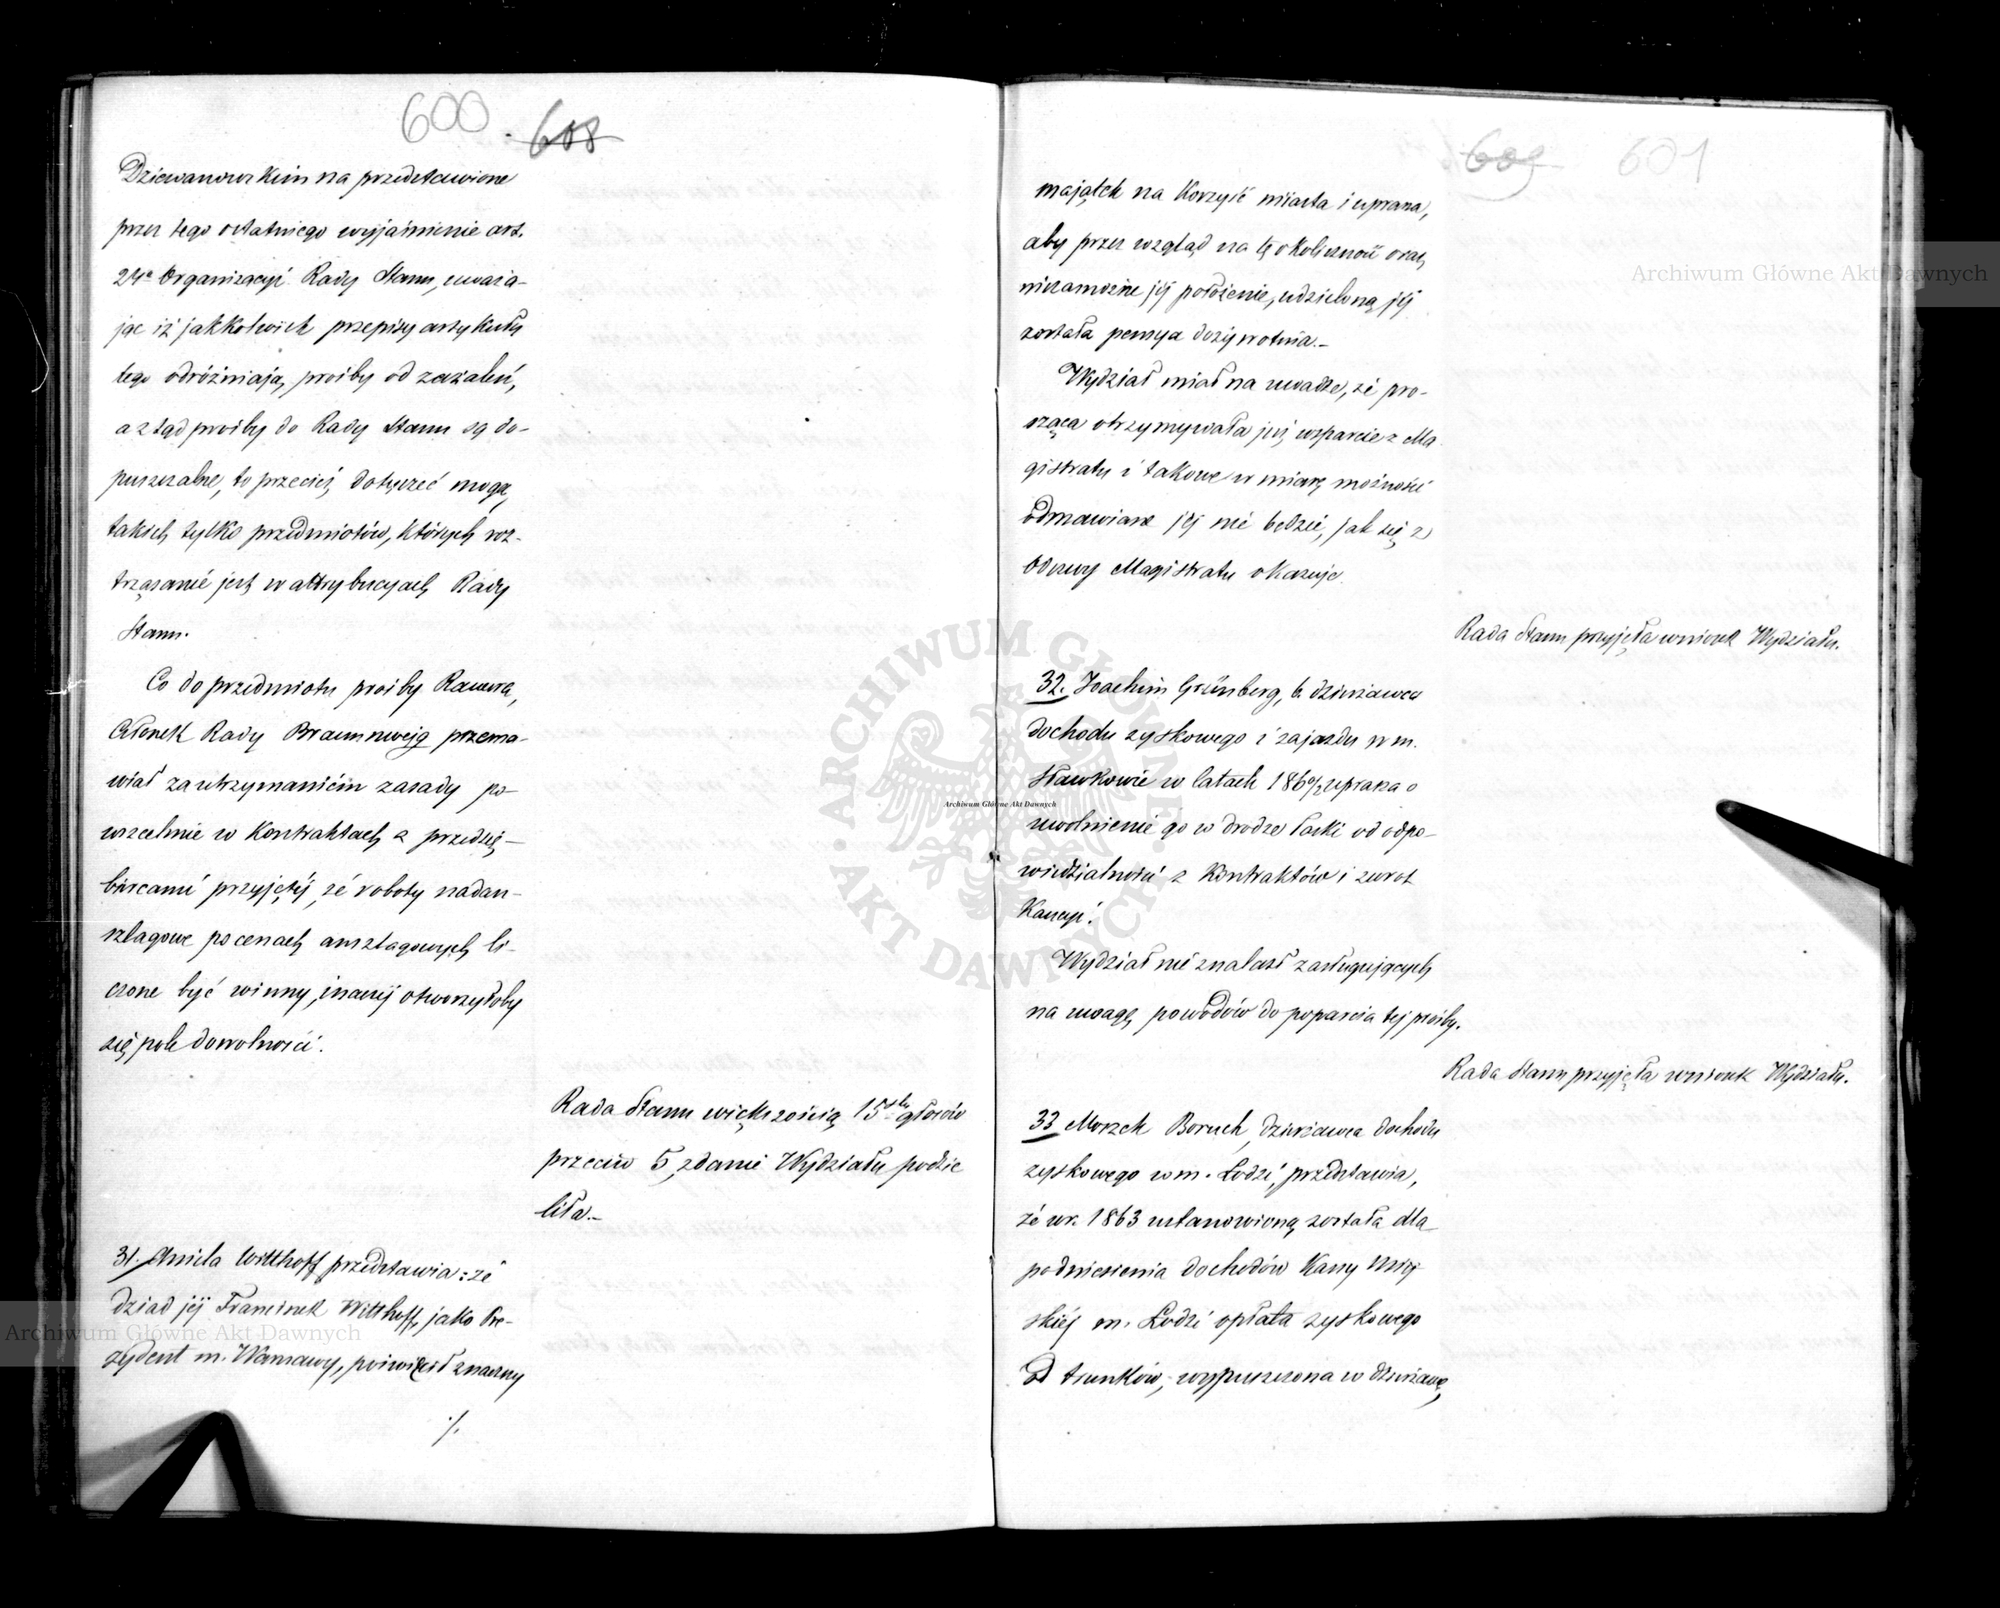 600 608
Dziewanowskim na przedstawione
przez tego ostatniego wyjaśnienie art.
24º Organizacyi Rady Stanu, uważa-
jąc iż jakkolwiek przepisy artykułu
tego odróżniają prośby od zażaleń,
a ztąd prośby do Rady Stanu są do-
puszczalne, to przecież dotyczeć mogą
takich tylko przedmiotów, których roz-
trząsanie jest w attrybucyach Rady
Stanu.
Co do przedmiotu prośby
Członek Rady Braunschweig przema-
wiał za utrzymaniem zasady po-
wszechnie w Kontraktach z przedsię-
biercami przyjętéj, że roboty nadan-
szlagowe po cenach anszlagowych li-
czone być winny, inaczéj otworzyłoby
się pole dowolności.
Rada Stanu większością 15stu głosów
przeciw 5, zdanie Wydziału podzie
liła.-
31. Aniela Witthoff przedstawia: że
dziad jéj Franciszek Witthoff, jako Pre-
zydent m. Warszawy, poświęcił znaczny
./.
609 601
majątek na Korzyść miasta i uprasza,
aby przez wzgląd na tę okoliczność oraz
niezamożne jéj położenie, udzieloną jéj
została pensya dożywotnia.-
Wydział miał na uwadze, że pro-
sząca otrzymywała już wsparcie z Ma
gistratu i takowe w miarę możności
odmawiane jéj nie będzie, jak się z
Odezwy Magistratu okazuje.
Rada Stanu przyjęła wniosek Wydziału.
32. Joachim Grünberg, b. dzierżawca
dochodu zyskowego i zajazdu w m.
Sławkowie w latach 1860/2 uprasza o
uwolnienie go w drodze łaski od odpo-
wiedzialności z Kontraktów i zwrot
Kaucyi.
Wydział nie znalazł zasługujących
na uwagę powodów do poparcia tej prośby.
Rada Stanu przyjęła wniosek Wydziału.
33 Moszek Boruch, dzierżawca dochodu
zyskowego w m. Łodzi, przedstawia,
że w r. 1863 ustanowioną została dla
podniesienia dochodów Kassy Miej
skiéj m. Łodzi opłata zyskowego
od trunków, wypuszczona w dzierżawę,
Archiwum Główne Akt Dawnych
Archiwum Główne Akt Dawnych
Archiwum Główne Akt Dawnych
ARCHIWUM GŁÓWNE AKT DAWNYCH